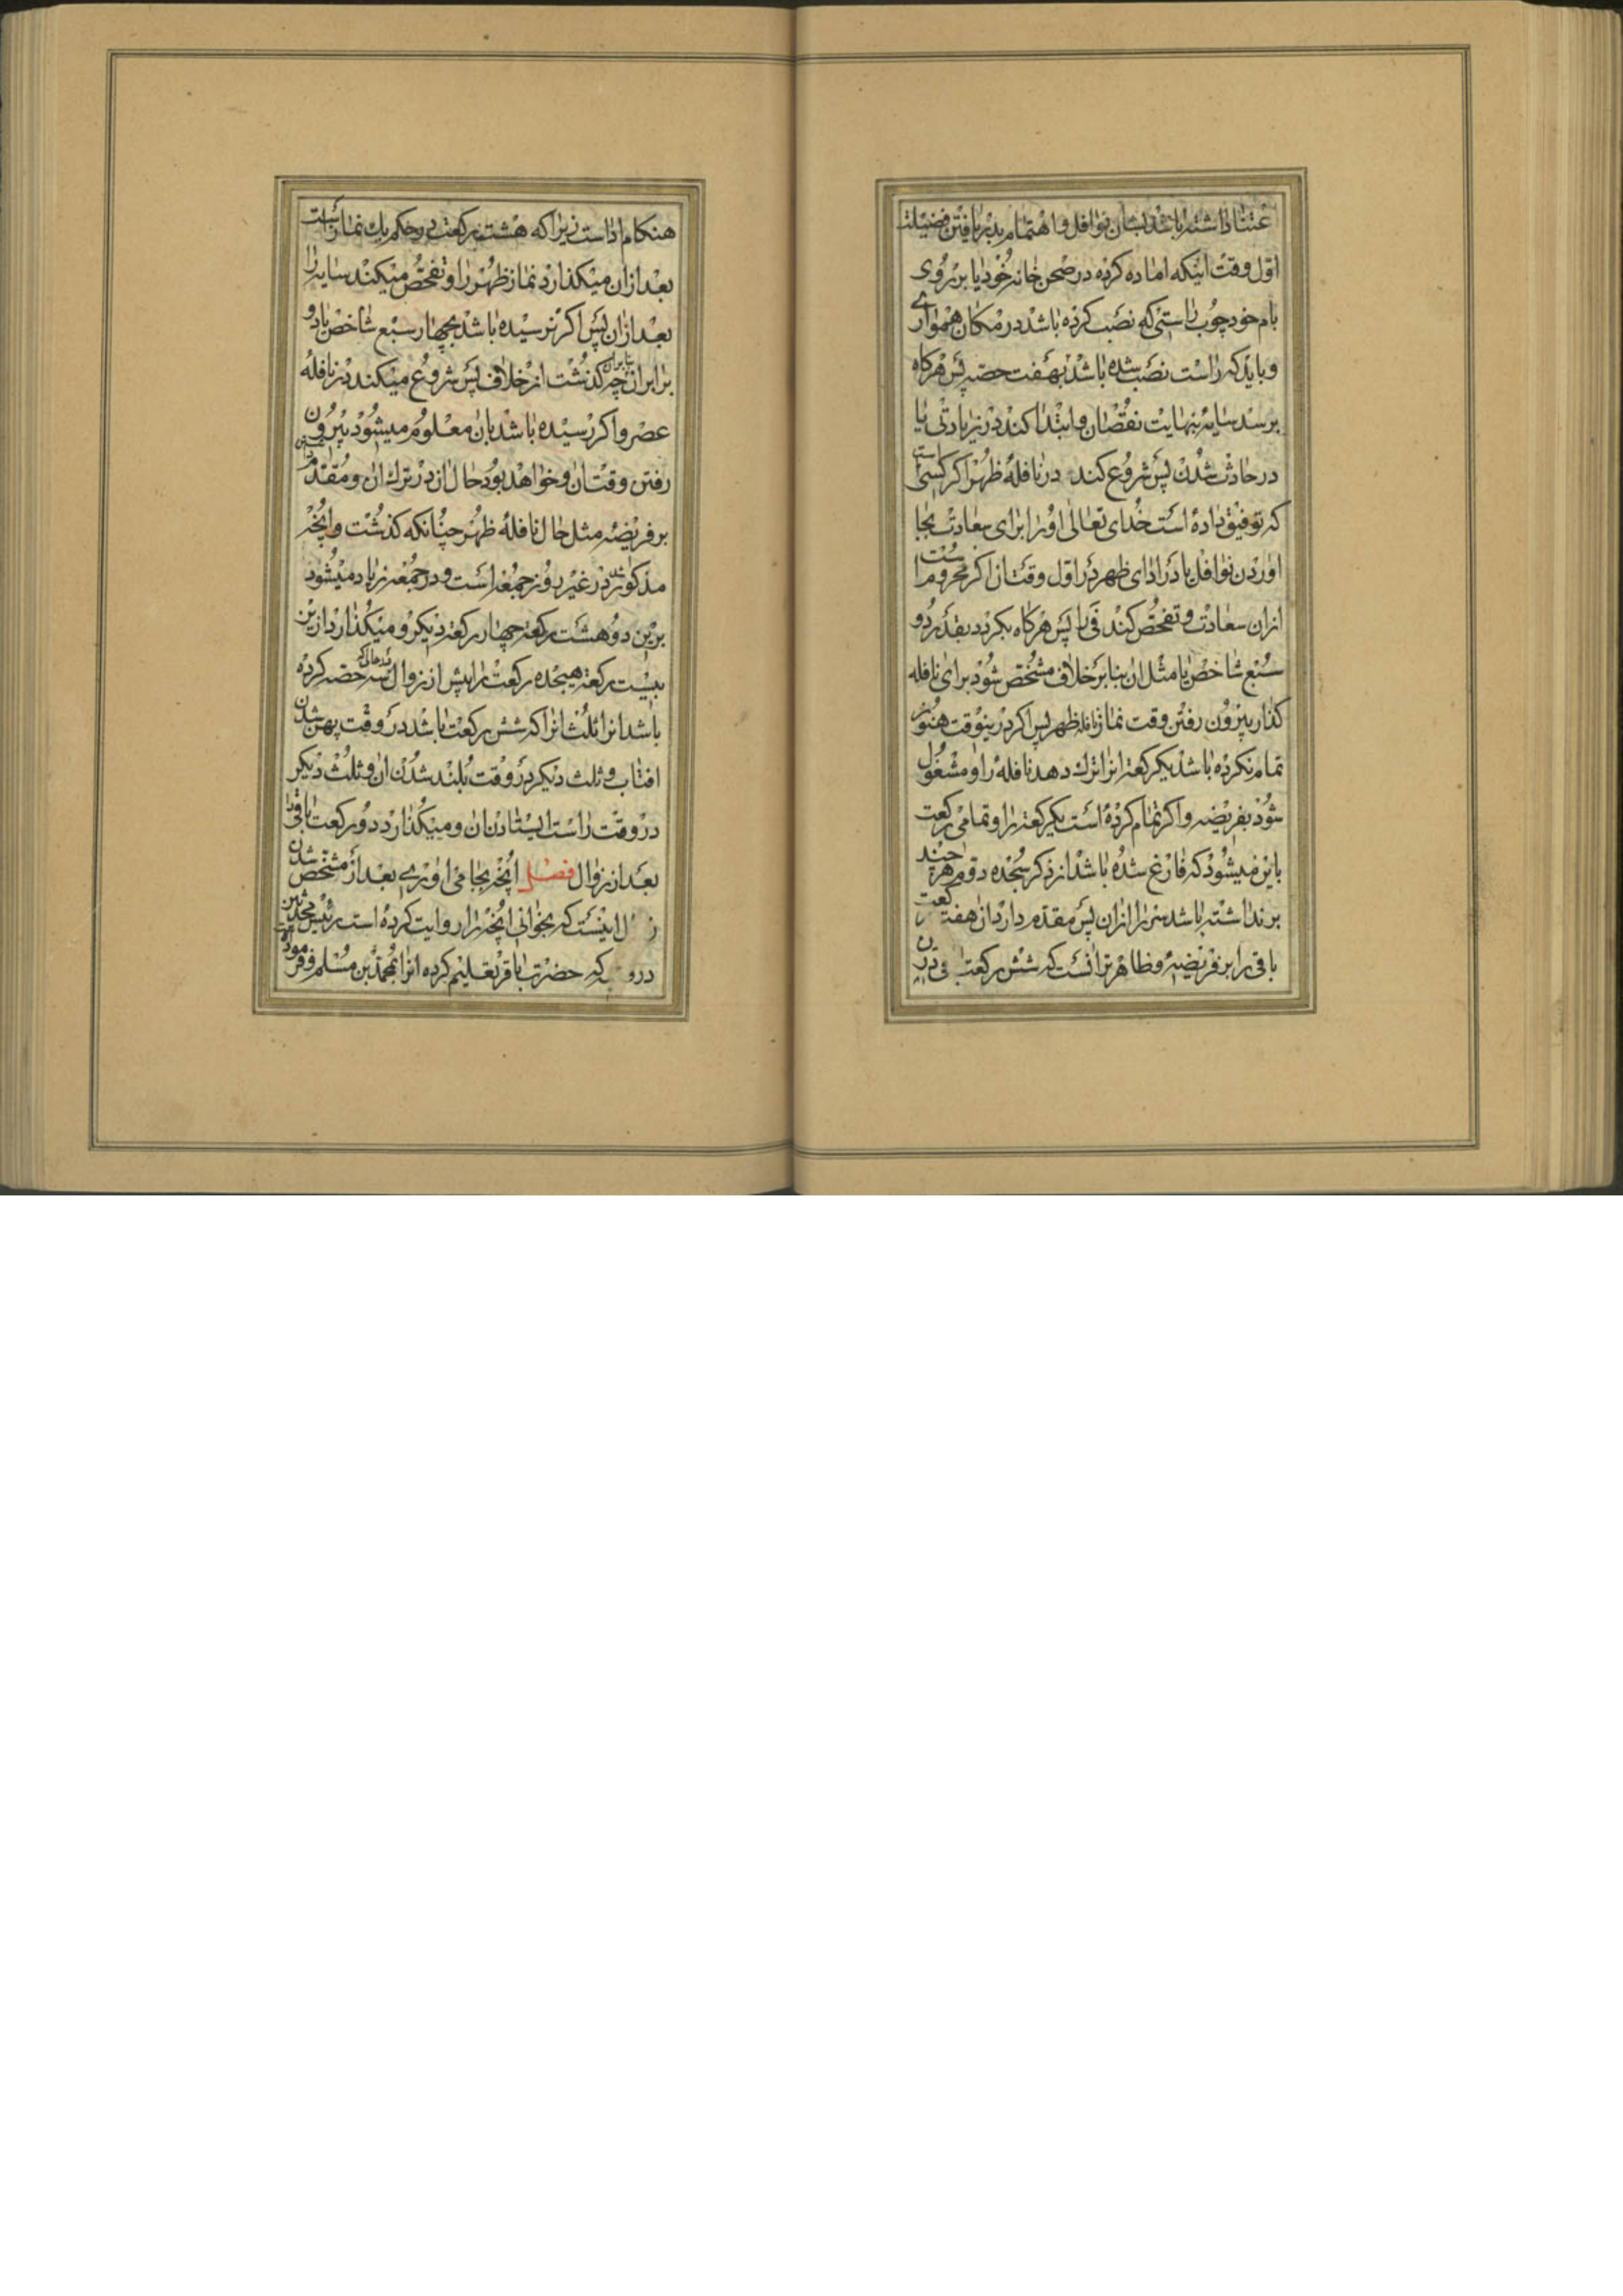 عتنا داشته باشد بشان نوافل و اهتمام بدریافتن فضیلت
اول وقت اینکه اماده کرده در صحن خانه خود یا بر روی
بام خود چوب راستی که نصب کرده باشد در مکان همواری
و باید که راست نصب شده باشد بهفت حصه پس هرکاه
برسد سایه بنهایت نقصان و ابتدا کند در زیادتی یا
در حادث شدن پس شروع کند در نافلهٔ ظهر اکر کسی استی
که توفیق داده است خدای تعالی او را برای سعادت بجا
اوردن نوافل یا در ادای ظهر در اول وقتان اکر محروم است
ازان سعادت و تفحص کند فی را پس هرکاه بکردد بقدر دو
سبع شاخص یا مثل ان بنا بر خلاف مشخص شود برای نافله
کذار بیرون رفتن وقت نماز نافله ظهر پس اکر در ینوقت هنوز
تمام نکرده باشد یکرکعت انرا ترک دهد نافله را و مشغول
شود بفریضه و اکر تمام کرده است یکرکعت را و تمامی رکعت
باین میشود که فارغ شده باشد از ذکر سجده دوم هر چند
برنداشته باشد سر را ازان پس مقدم دارد ان هفت رکعت
باقی را بر فریضه و ظاهر تر انست که شش رکعت
هنکام اداست زیرا که هشت رکعت در حکم یک نماز است
بعد ازان میکذارد نماز ظهر را و تفحص میکند سایه را
بعد ازان پس اکر نرسیده باشد بچهار سبع شاخص یا دو
برابر ان بنا بران چه کذشت از خلاف پس شروع میکند در نافله
عصر و اکر رسیده باشد بان معلوم میشود بیرون
رفتن وقت ان و خواهد بود حال ان در ترک ان و مقدم
بر فریضه مثل حال نافلهٔ ظهر چنانکه کذشت و انچه
مذکور شد در غیر روز جمعه است و در جمعه زیاد میشود
برین دو هشت رکعت چهار رکعت دیکر و میکذارد ازین
بیست رکعت هیجده رکعت را پیش از زوال در حالی که سه حصه کرده
باشد انرا ثلث انرا که شش رکعت باشد در وقت پهن شدن
افتاب و ثلث دیکر در وقت بلند شدن ان و ثلث دیکر
در وقت راست ایستادن ان و میکذارد دو رکعت باقی را
بعد از زوال فصل انچه بجا می اوری بعد از مشخص شدن
اینست که بخوانی انچه را روایت کرده است رئیس محدثین
که حضرت باقر تعلیم کرده انرا بمحمد بن مسلم و فرموده